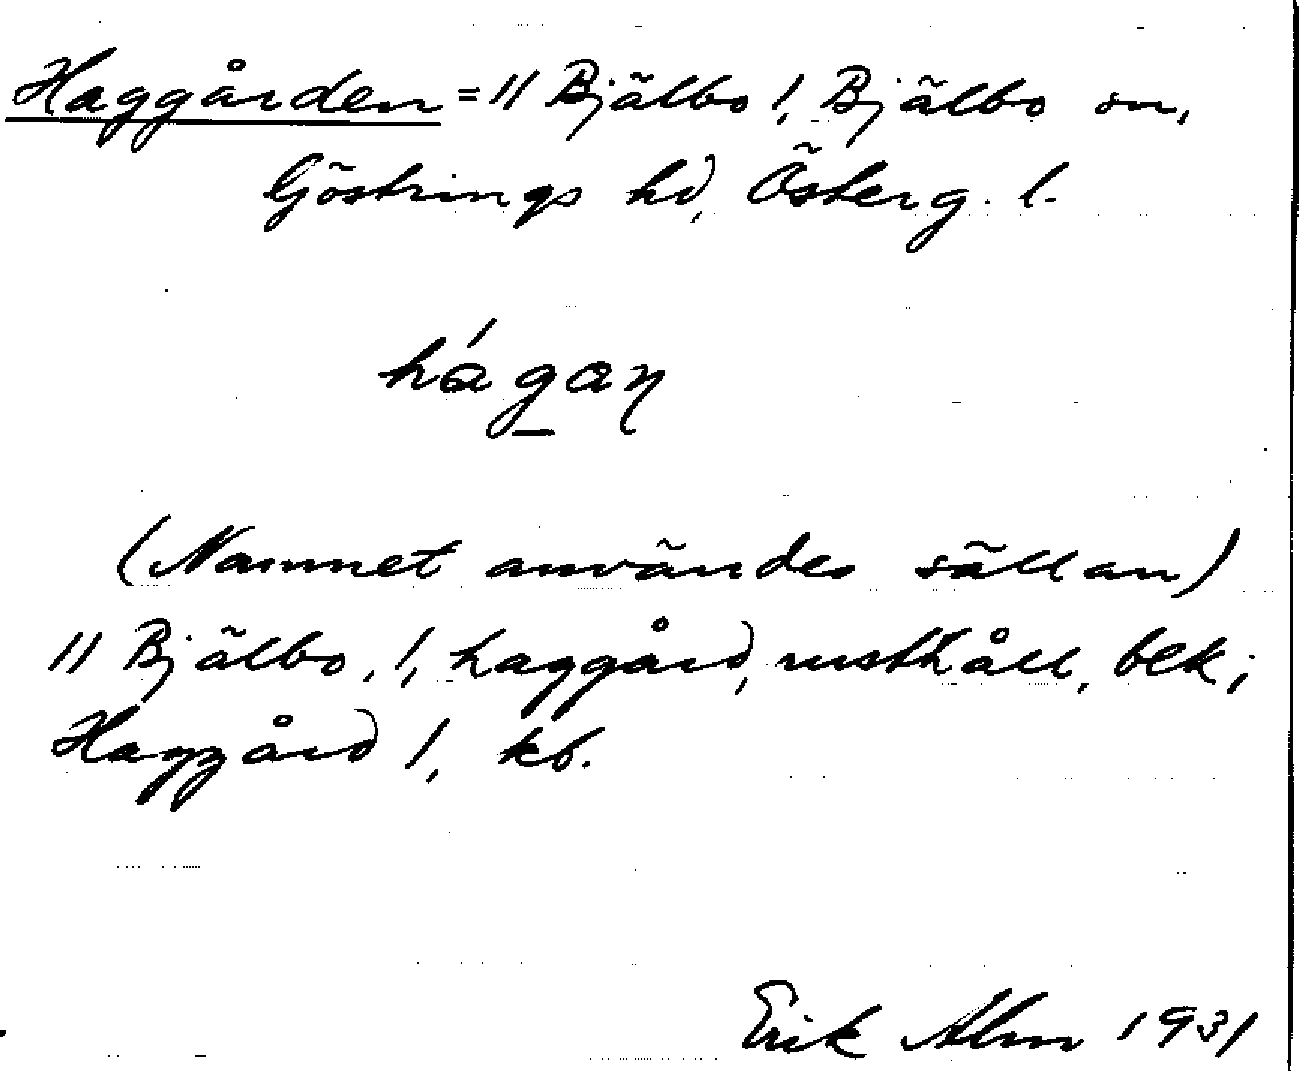 Haggården = 11 Bjälbo 1, Bjälbo sn,
Göstrings hd, Österg. l.
hágaŋ
(Namnet användes sällan)
11 Bjälbo, 1, haggård, rusthåll, blk;
Haggård 1, kb.
Erik Alm 1931